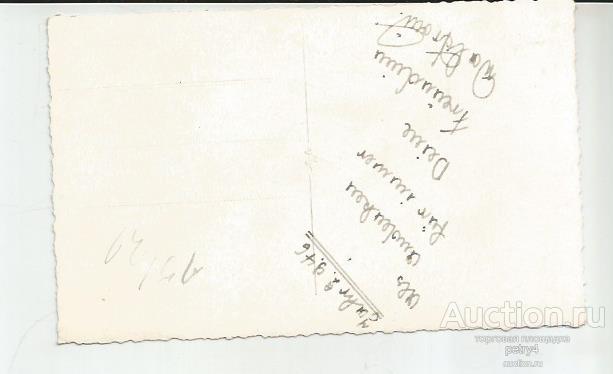 Als Andenken
für immer
Deine
Freundin
Waltraut
Jahr 1946
Auction.ru
торговая площадка
petry4
auction.ru